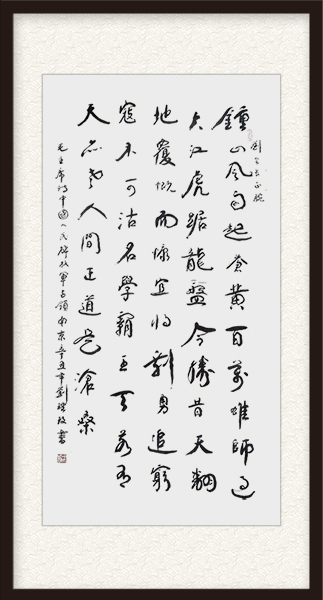 鍾山風雨起蒼黃百萬雄師過
大江虎踞龍盤今勝昔天翻
地覆慨而慷宜將剩勇追窮
寇不可沽名學霸王天若有
天亦老人間正道是滄桑
毛主席詩中國人民解放軍占領南京辛丑年劉書